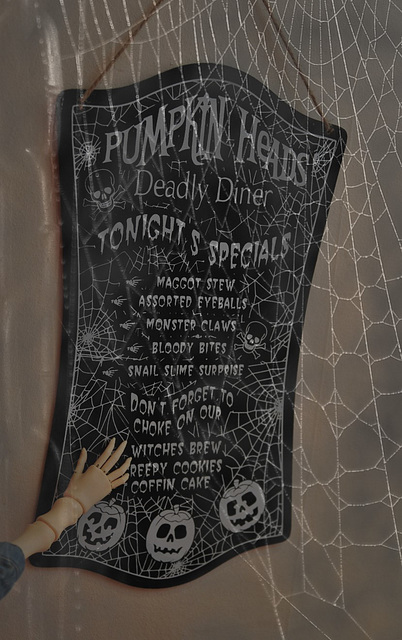 PUMPKIN HEADS
Deadly Diner
TONIGHT'S SPECIALS
MAGGOT STEW
ASSORTED EYEBALLS
MONSTER CLAWS
BLOODY BITES
SNAIL SLIME SURPRISE
DON'T FORGET TO
CHOKE ON OUR
WITCHES BREW
REEPY COOKIES
COFFIN CAKE